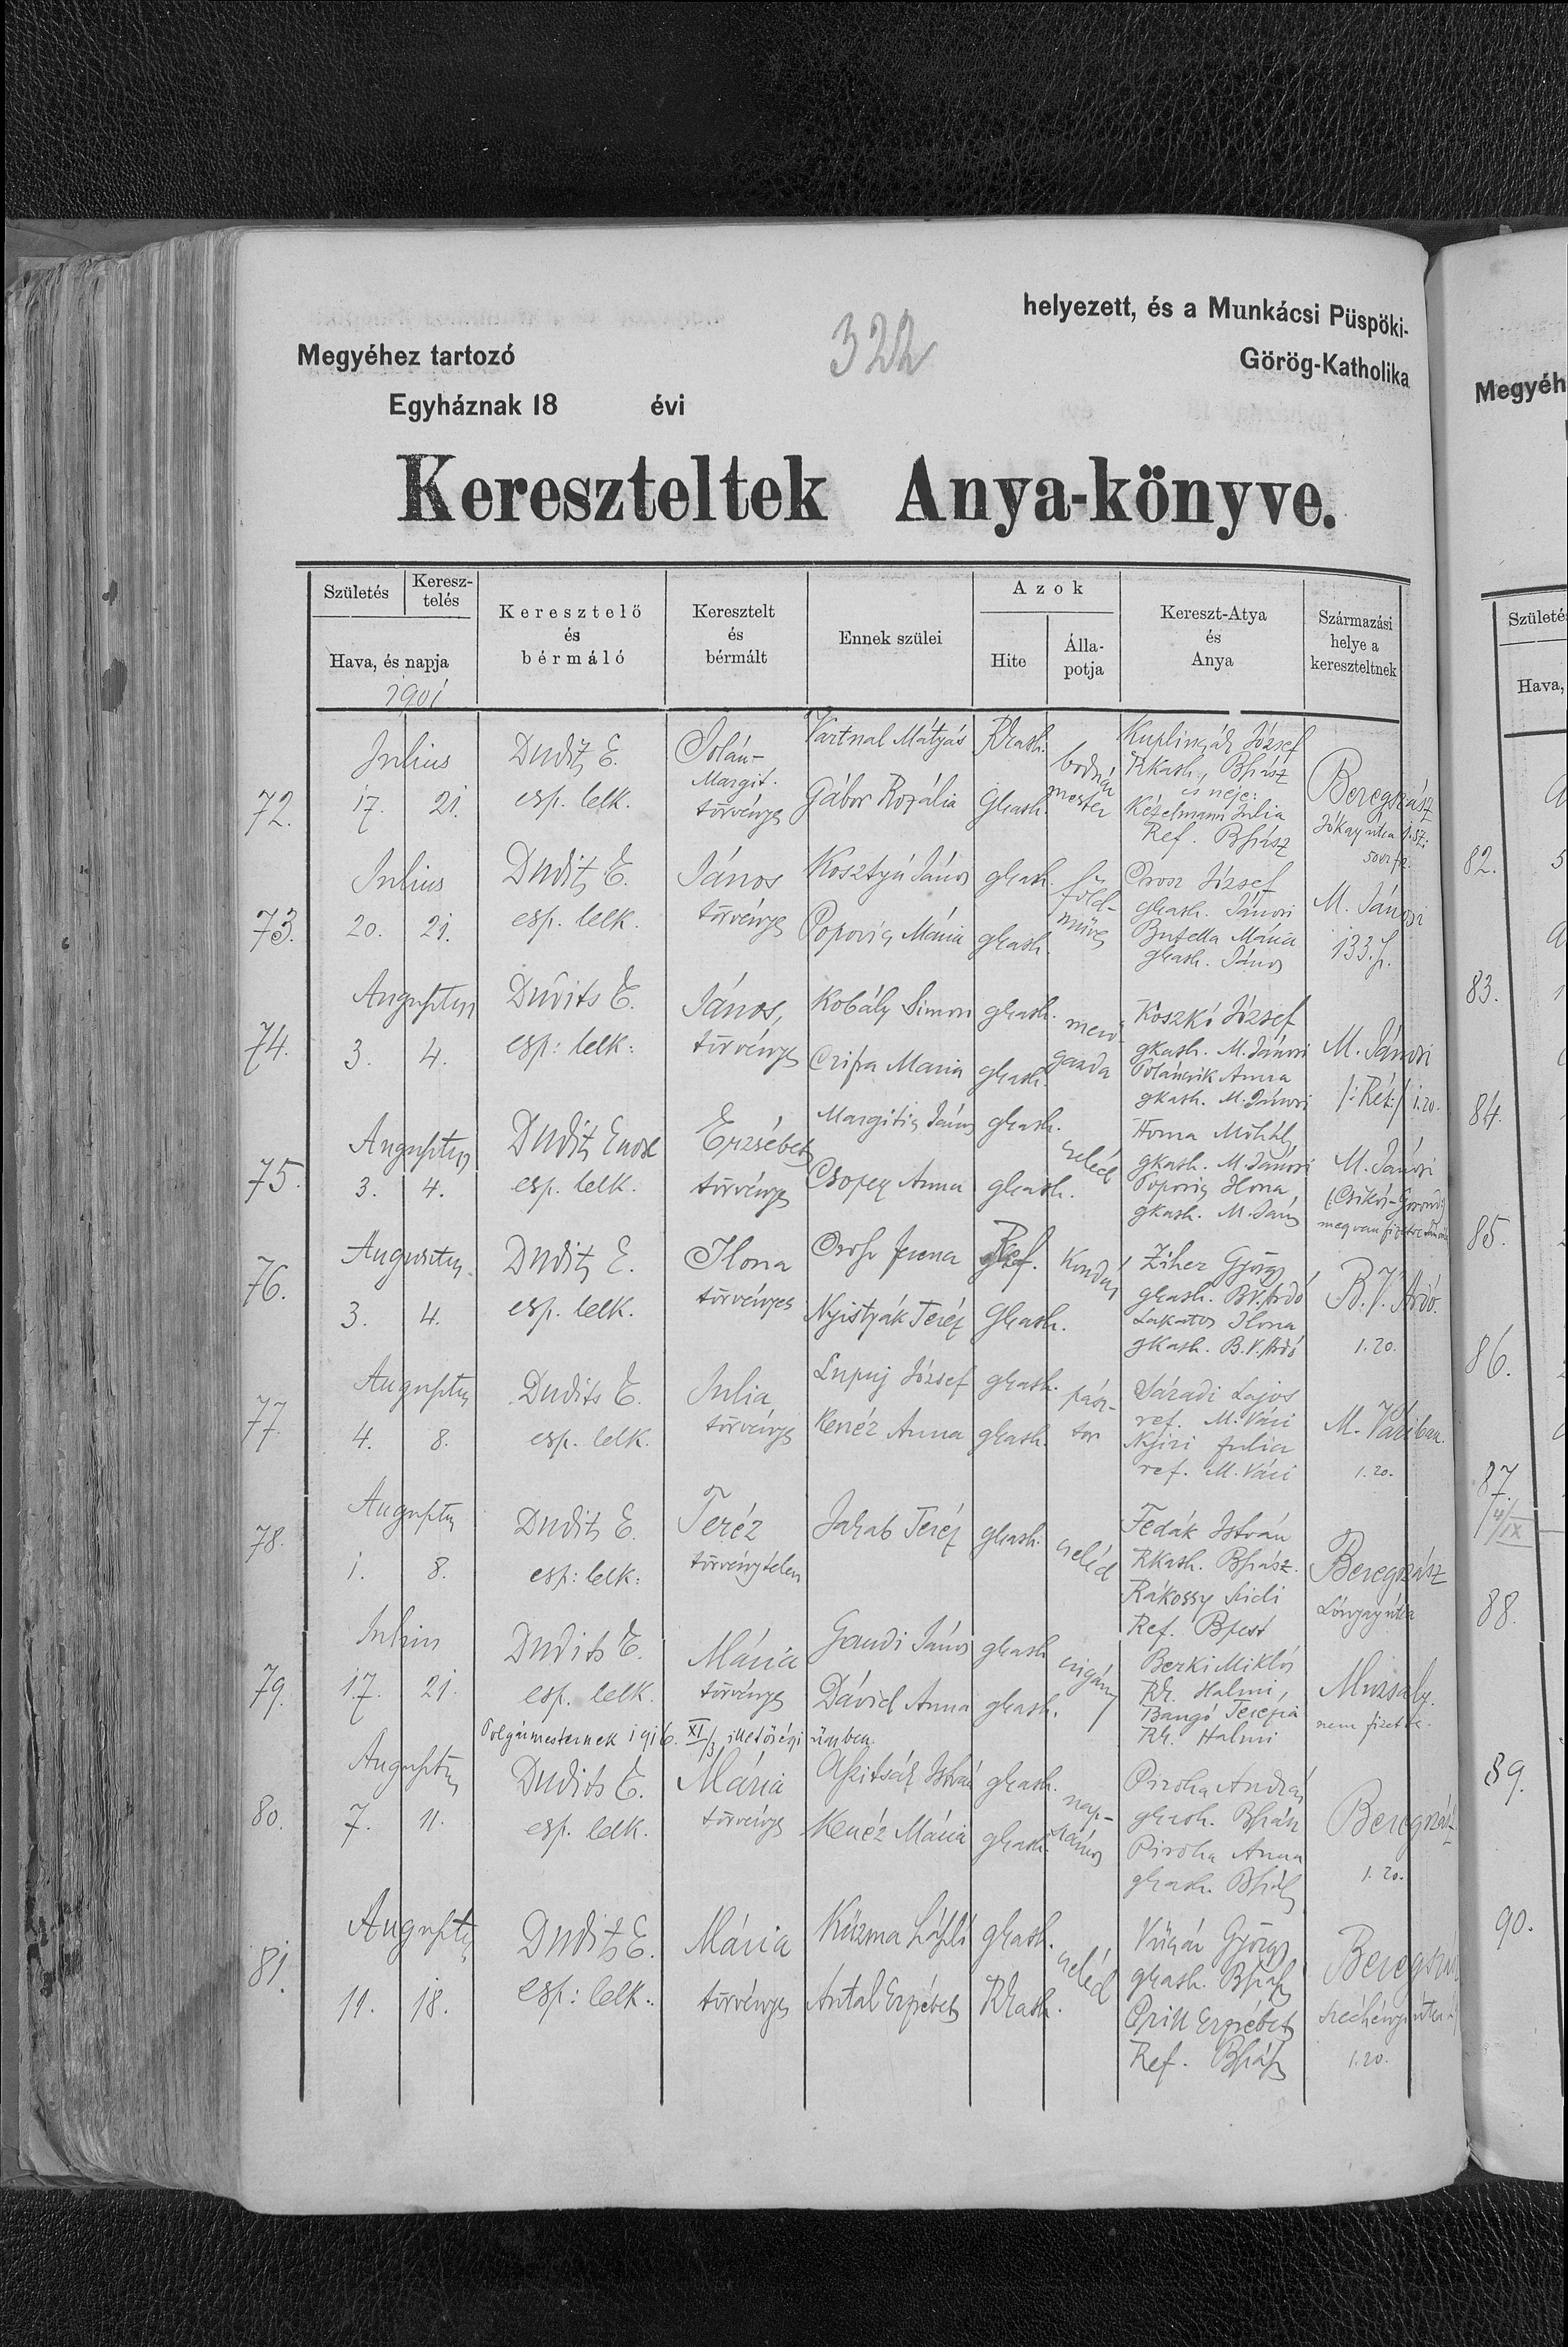 helyezett, és a Munkácsi Püspöki-
Megyéhez tartozó
322
Görög-Katholika
Egyháznak 18 évi
Kereszteltek Anya-könyve.
Születés
Keresz-
telés
Hava, és napja
1901
Keresztelő
és
bérmáló
Keresztelt
és
bérmált
Ennek szülei
Azok
Hite
Álla-
potja
Kereszt-Atya
és
Anya
Származási
helye a
kereszteltnek
72.
Julius
17. 21.
Dudits E.
esp. lelk.
Jolán-
Margit.
törvényes
Vartnal Mátyás Rkath.
Gábor Rozália Gkath.
bodnár
mester
József
Rkath., Bszász
és neje:
Julia
Ref. Bszász
Beregszász
Jókay utca
73.
Julius
20. 21.
Dudits E.
esp. lelk.
János
törvényes
Kosztyú János gkath.
Popovics Mária gkath.
föld-
műves
Orosz József
gkath. Jánosi
Butella Mária
gkath. János
M. Jánosi
133. f.
74.
Augusztus
3. 4.
Dudits E.
esp: lelk:
János,
törvényes
Kobály Simon gkath.
Czipa Maria gkath.
gazda
Koszkó József
gkath. M. Jánosi
Anna
gkath. M. Jánosi
M. Jánosi
/:Rét:/ 1.20.
75.
Augusztus
3. 4.
Dudits Enoxe
esp. lelk.
Erzsébet
törvényes
Margitics János gkath.
Csopey Anna gkath.
cseléd
Homa Mihály
gkath. M. Jánosi
Popovics Ilona,
gkath. M. János
M. Jánosi
76.
Augusztus
3. 4.
Dudits E.
esp. lelk.
Ilona
törvényes
Orosz Ferenc Ref.
Nyistyák Teréz Gkath.
Kondás
Ziher György
gkath. B.V. Ardó
Lakatos Ilona
gkath. B.V. Ardó
B.V. Ardó.
1.20.
77.
Augusztus
4. 8.
Dudits E.
esp. lelk.
Julia
törvényes
Lupuj József gkath.
Kenéz Anna gkath.
pász-
tor
Váradi Lajos
ref. M. Vári
Nyiri Julia
ref. M. Vári
M. Váriban.
1.20.
78.
Augusztus
1. 8.
Dudits E.
esp: lelk:
Teréz
törvénytelen
Jakab Teréz gkath.
cseléd
Fedák István
Rkath. Bszász.
Rákossy Lidi
Ref. Bpest
Beregszász
Lónyay utca
79.
Julius
17. 21.
Dudits E.
esp. lelk.
Mária
törvényes
Gandi János gkath
Dávid Anna gkath.
cigány
Berki Miklós
Rk. Halmi,
Bangó Terézia
Rk. Halmi
Muzsaly.
nem fizetett.
Polgármesternek 1916. XI/3 illetőségi ügyben.
80.
Augusztus
7. 11.
Dudits E.
esp. lelk.
Mária
törvényes
István gkath.
Kenéz Mária gkath.
nap-
számos
Piroha András
gkath. Bszász
Piroha Anna
gkath. Bszász
Beregszász
1.20.
81.
Augusztus
11. 18.
Dudits E.
esp: lelk.
Mária
törvényes
Kuzma László gkath.
Antal Erzsébet Rkath.
cseléd
György
gkath. Bszász
Prill Erzsébet
Ref. Bszász
Beregszász
Széchényi utca
1.20.
Megyéh
Születé
Hava,
82.
83.
84.
85.
86.
87.
4/IX
88.
89.
90.